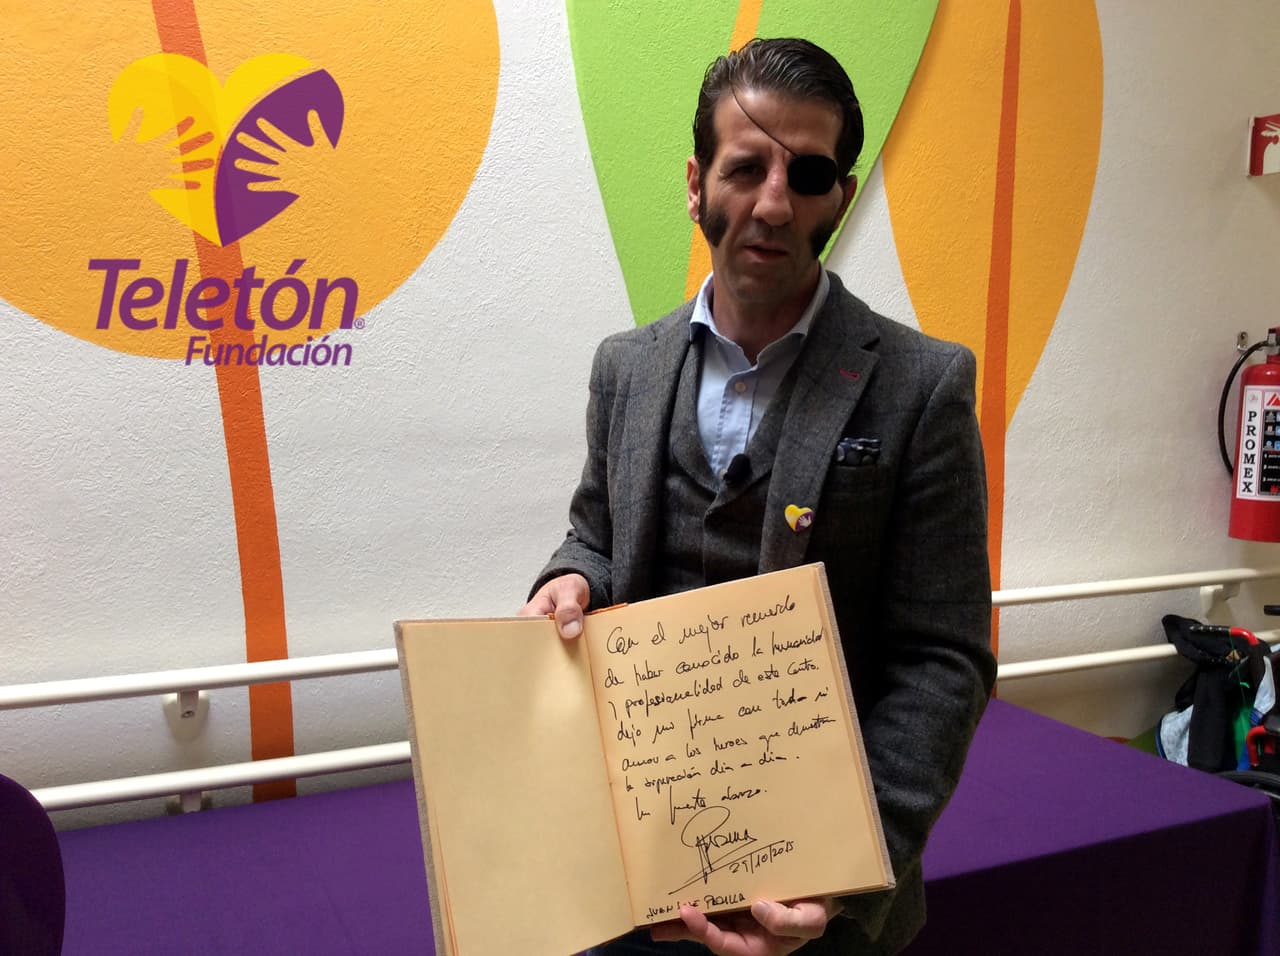 Teletón®
Fundación
PROMEX
Con el mejor recuerdo
de haber conocido la humanidad
y profesionalidad de este Centro.
dejo mi firma con todo mi
amor a los heroes que demuestran
la superación día a día.
Un fuerte abrazo.
Padilla
29/10/2015
JUAN JOSE PADILLA